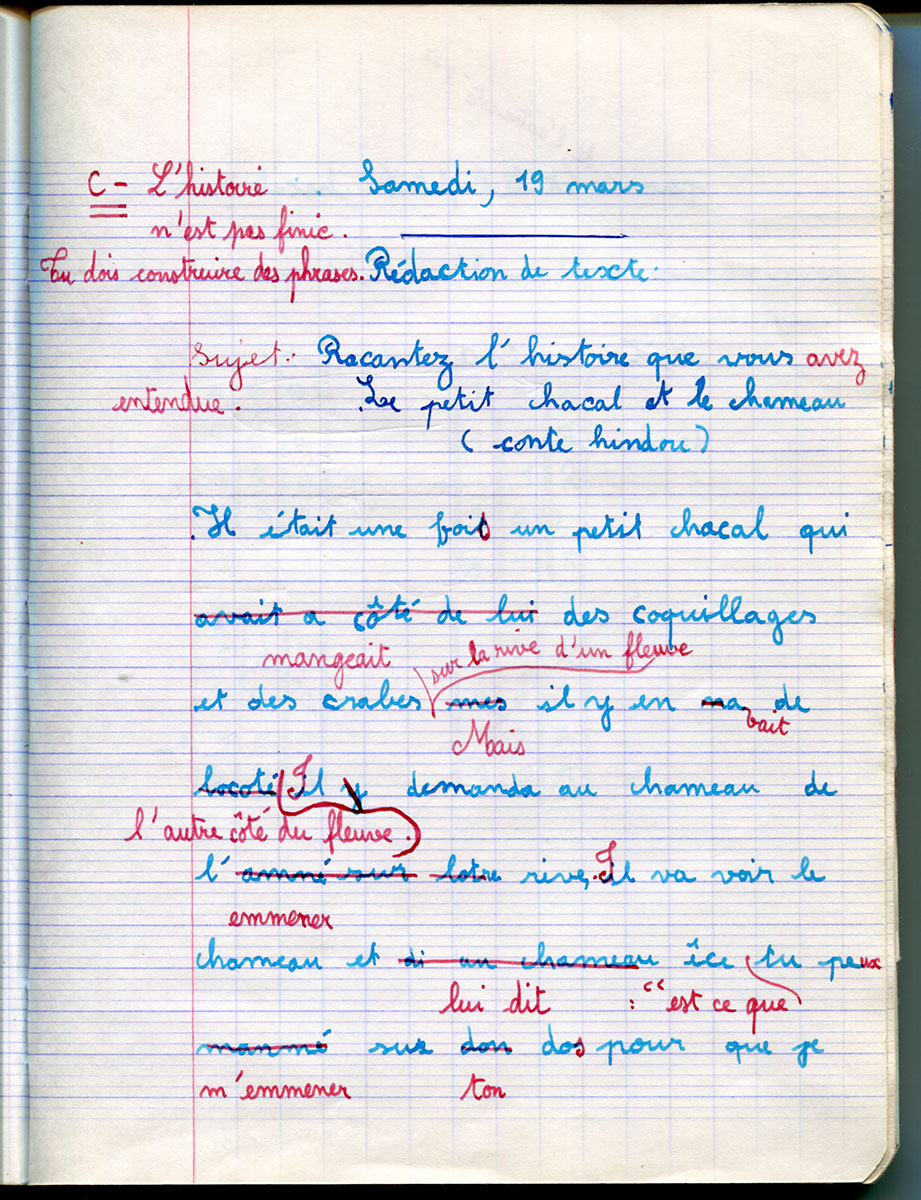 C - L'histoire . Samedi, 19 mars
n'est pas finie.
Tu dois construire des phrases. Rédaction de texte.
Sujet: Racantez l'histoire que vous avez
entendue. Le petit chacal et le chameau
(conte hindou)
Il était une fois un petit chacal qui
avait a côté de lui des coquillages
mangeait sur la rive d'un fleuve
et des crabes mes il y en a de
Mais vait
locoté Il y demanda au chameau de
l'autre côté du fleuve.
l'amné sur lotre rive, Il va voir le
emmener
chameau et di au chameau îce tu peux
lui dit : “est ce que
manmé sur don dos pour que je
m'emmener ton